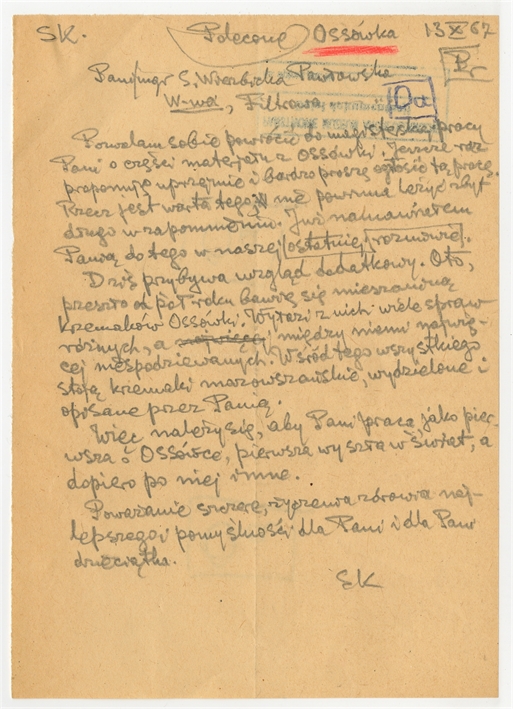 SK. Polecone Ossówka 13 X 67
Pr
Pani/mgr S. Wierzbicka Pawłowska
W-wa, Filtrowa Od
Pozwalam sobie powrócić do magisterskiej pracy
Pani o części materjału z Ossówki. Jeszcze raz
proponuję uprzejmie i bardzo proszę ogłosić tą pracę.
Rzecz jest warta tego i nie powinna leżeć zbyt
długo w zapomnieniu. Już namawiałem
Panią do tego w naszej ostatniej rozmowie.
Dziś przybywa wzgląd dodatkowy. Oto,
przeszło od pół roku bawię się mieszaniną
krzemaków Ossówki. Wyłazi z nich wiele spraw
różnych, a między niemi najwię-
cej niespodziewanych. Wśród tego wszystkiego
stoją krzemaki mazowszańskie, wydzielone i
opisane przez Panią.
Więc należy się, aby Pani praca, jako pier-
wsza o Ossówce, pierwsza wyszła w Świat, a
dopiero po niej inne.
Poważanie szczere, życzenia zdrowia naj-
lepszego i pomyślności dla Pani i dla Pani
dzieciątka.
SK